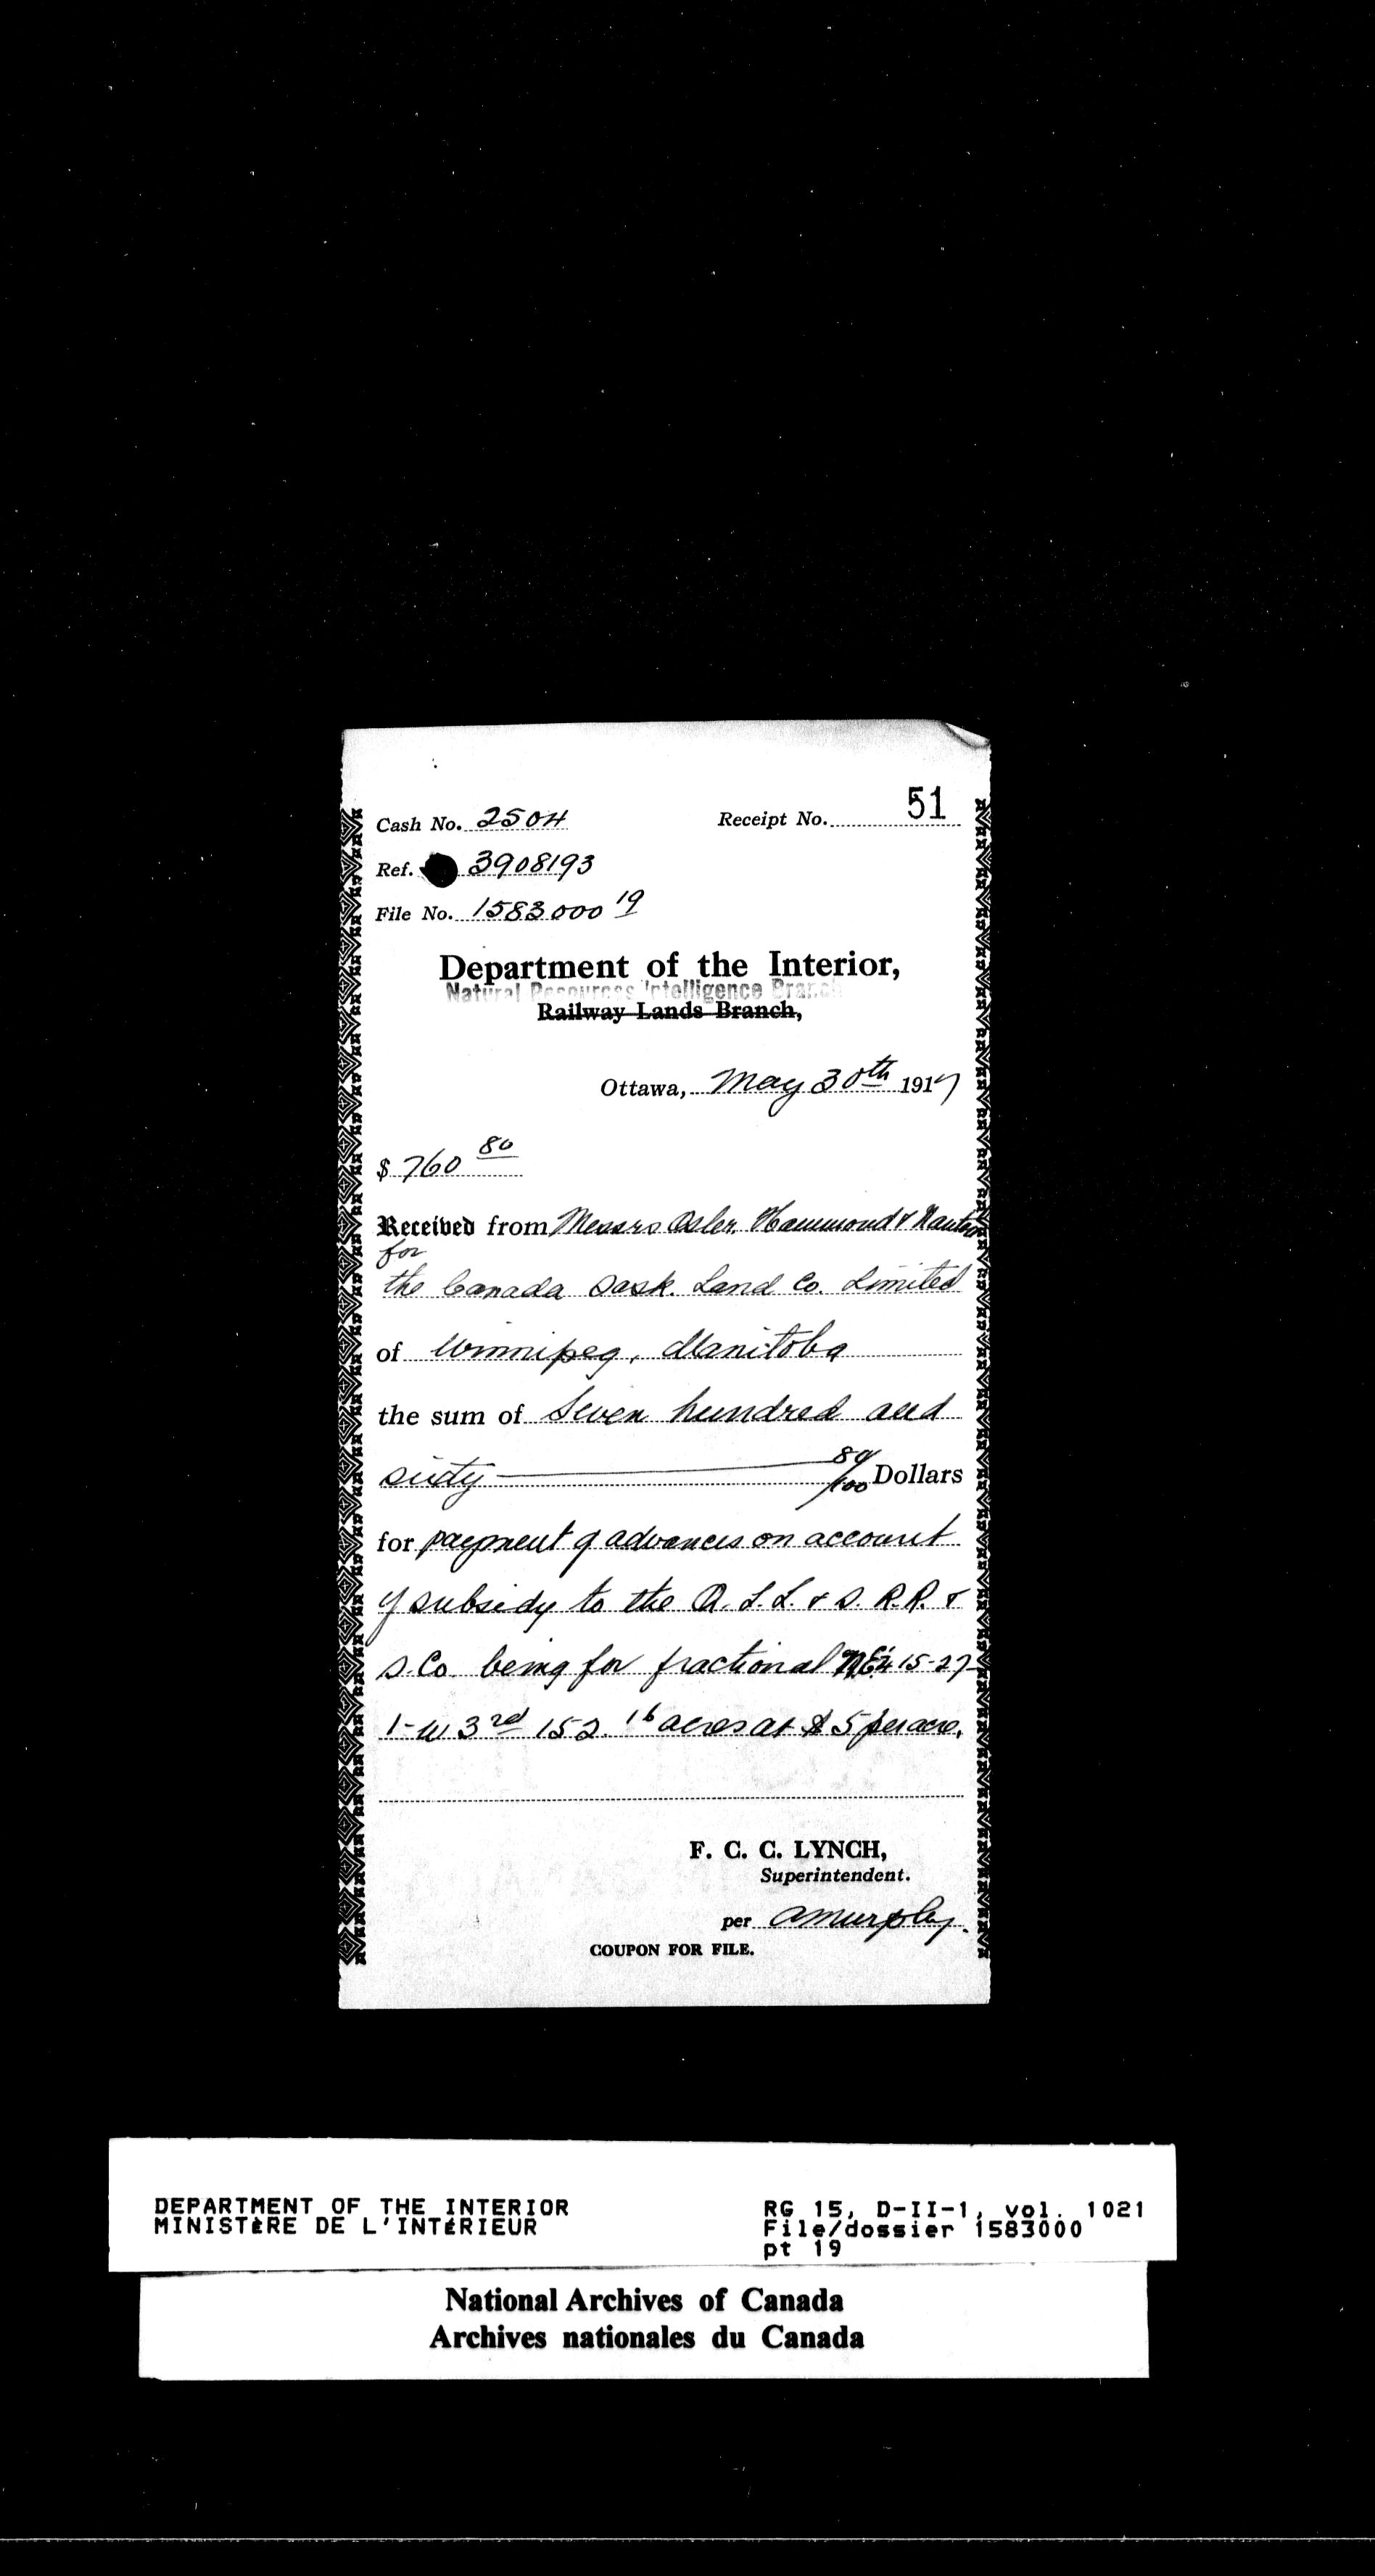 Cash No. 2504 Receipt No. 51
Ref. 3908193
File No. 1583000 19
Department of the Interior,
Natural Resources Intelligence Branch
Railway Lands Branch,
Ottawa, May 30th 1917
$ 760 80
Received from Messrs Osler, Hammond & Nanton
for
the Canada Sask. Land Co. Limited
of Winnipeg, Manitoba
the sum of Seven hundred and
sixty 80/100 Dollars
for payment of advances on account
of subsidy to the Q. L. L. & S. R.R. &
S. Co. being for fractional NE¼ 15-27-
1-W 3rd 152.16 acres at $5 per acre.
F. C. C. LYNCH,
Superintendent.
per AMurphy.
COUPON FOR FILE.
DEPARTMENT OF THE INTERIOR
MINISTÈRE DE L'INTÉRIEUR
RG 15, D-II-1, vol. 1021
File/dossier 1583000
pt 19
National Archives of Canada
Archives nationales du Canada